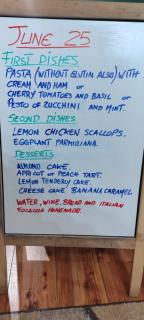 JUNE 25
FIRST DISHES
PASTA (WITHOUT GLUTIN ALSO) WITH
CREAM AND HAM or
CHERRY TOMATOES AND BASIL or
PESTO OF ZUCCHINI AND MINT.
SECOND DISHES
LEMON CHICKEN SCALLOPS.
EGGPLANT PARMIGIANA.
DESSERTS
ALMOND CAKE.
APRICOT or PEACH TART.
LEMON TENDERLY CAKE.
CHEESE CAKE BANANA CARAMEL
WATER, WINE, BREAD AND ITALIAN
FOCACCIA HOMEMADE.